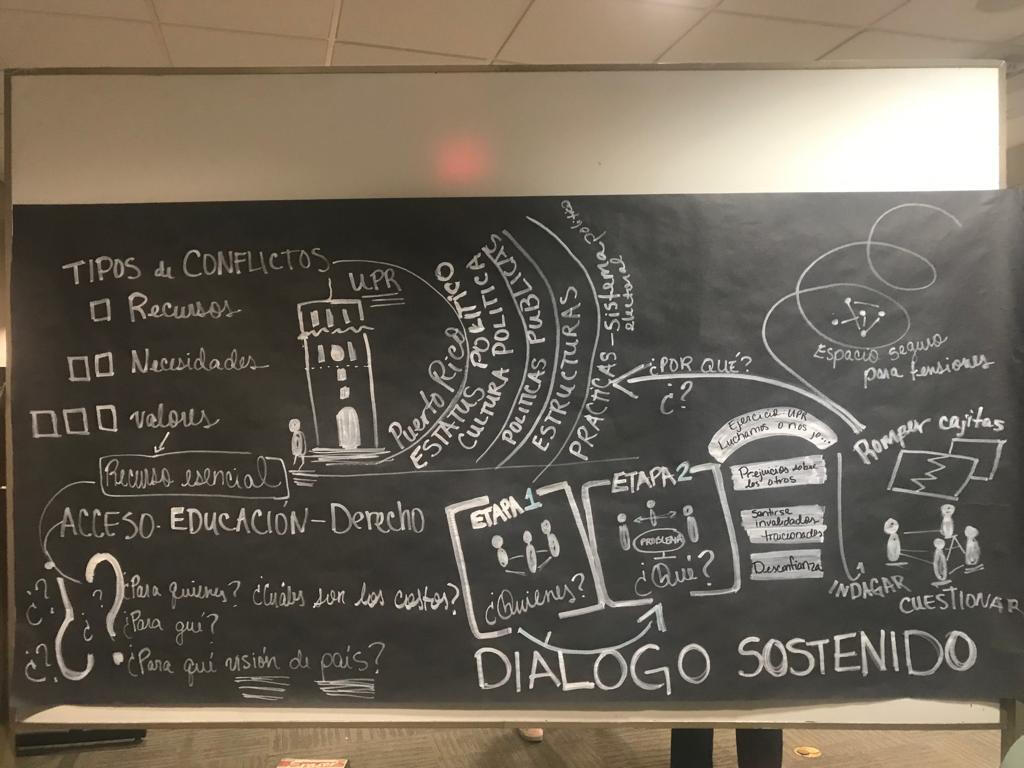 TIPOS de CONFLICTOS
Recursos
Necesidades
valores
Recurso esencial
ACCESO. EDUCACIÓN - Derecho
¿?
¿?
¿?
¿?
¿Para quienes? ¿Cuáles son los costos?
¿Para qué?
¿Para qué visión de país?
UPR
Puerto Rico
ESTATUS POLÍTICO
CULTURA POLITICA
POLITICAS PUBLICAS
ESTRUCTURAS
PRACTICAS - Sistema político
electoral
¿POR QUÉ?
¿?
Espacio seguro
para tensiones
Romper cajitas
Ejercicio UPR
Luchamos o nos jo...
Prejuicios sobre
los otros
Sentirse
invalidados
traicionados
Desconfianza
INDAGAR
CUESTIONAR
ETAPA 1
¿Quienes?
ETAPA 2
PROBLEMA
¿Qué?
DIALOGO SOSTENIDO
Eraser